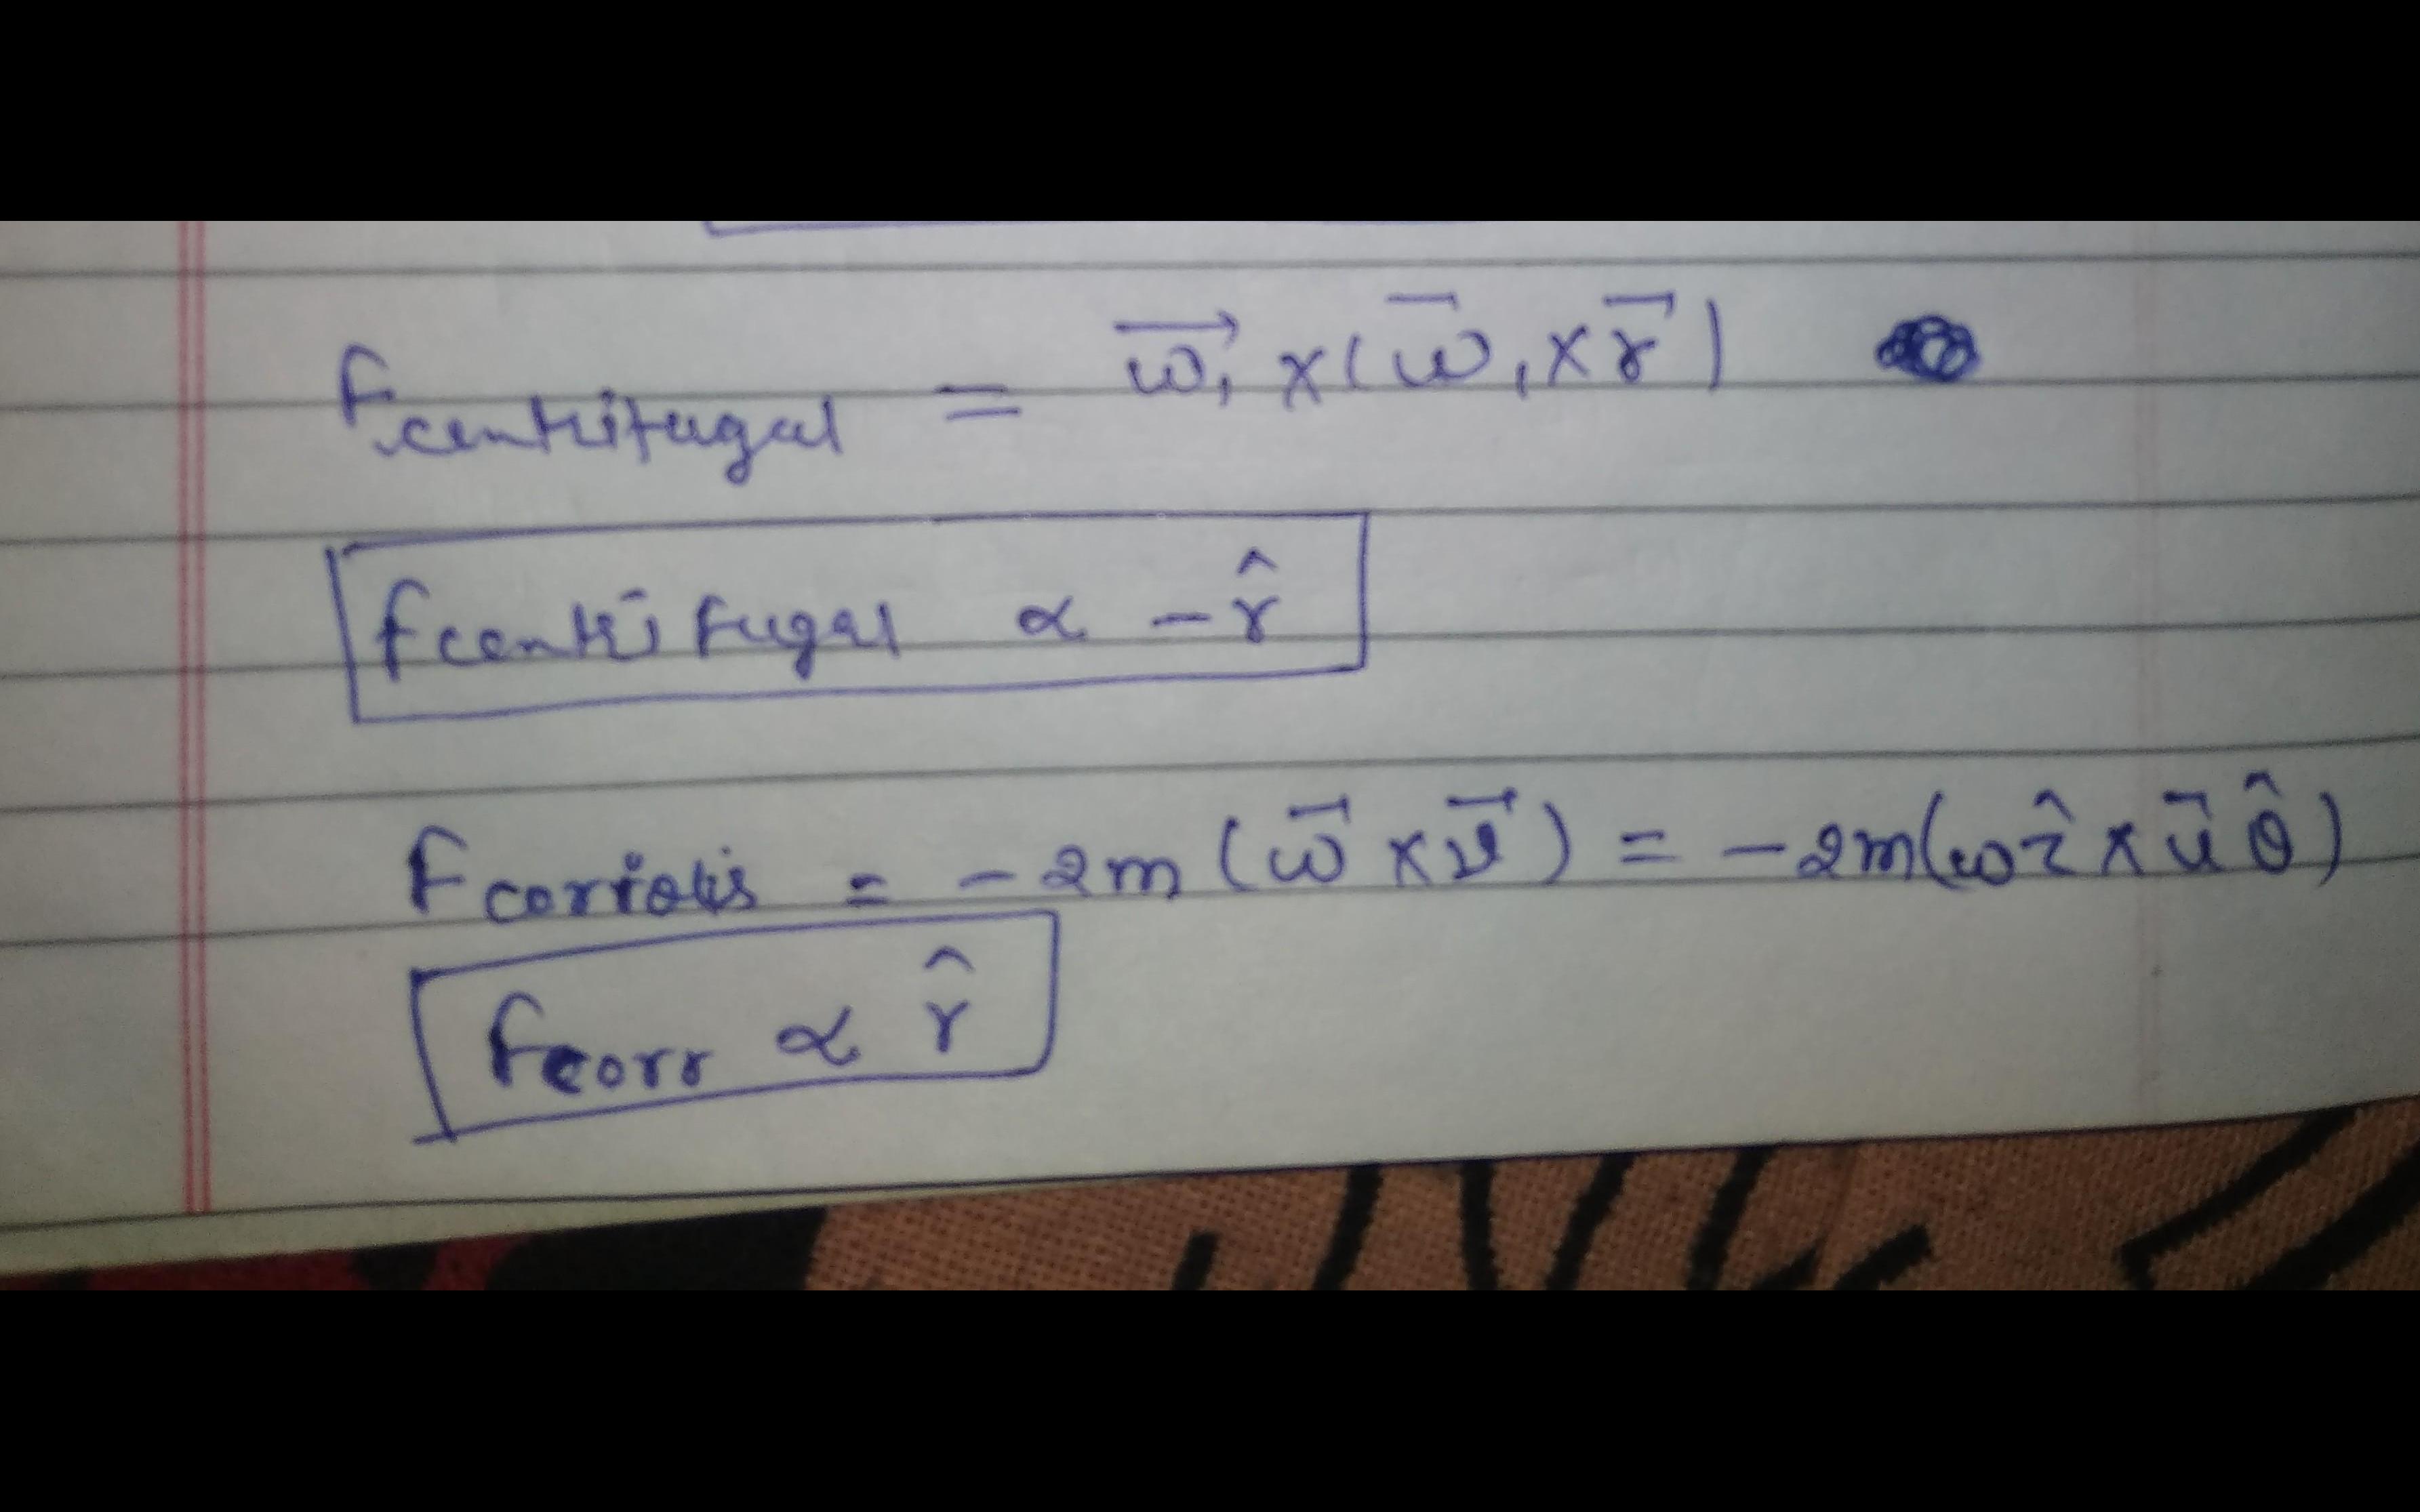 F centrifugal = ω⃗₁ × (ω⃗₁ × r⃗)
f centrifugal ∝ − r̂
F coriolis = − 2m (ω⃗ × v⃗) = − 2m(ω ẑ × u⃗ θ̂)
Fcorr ∝ r̂